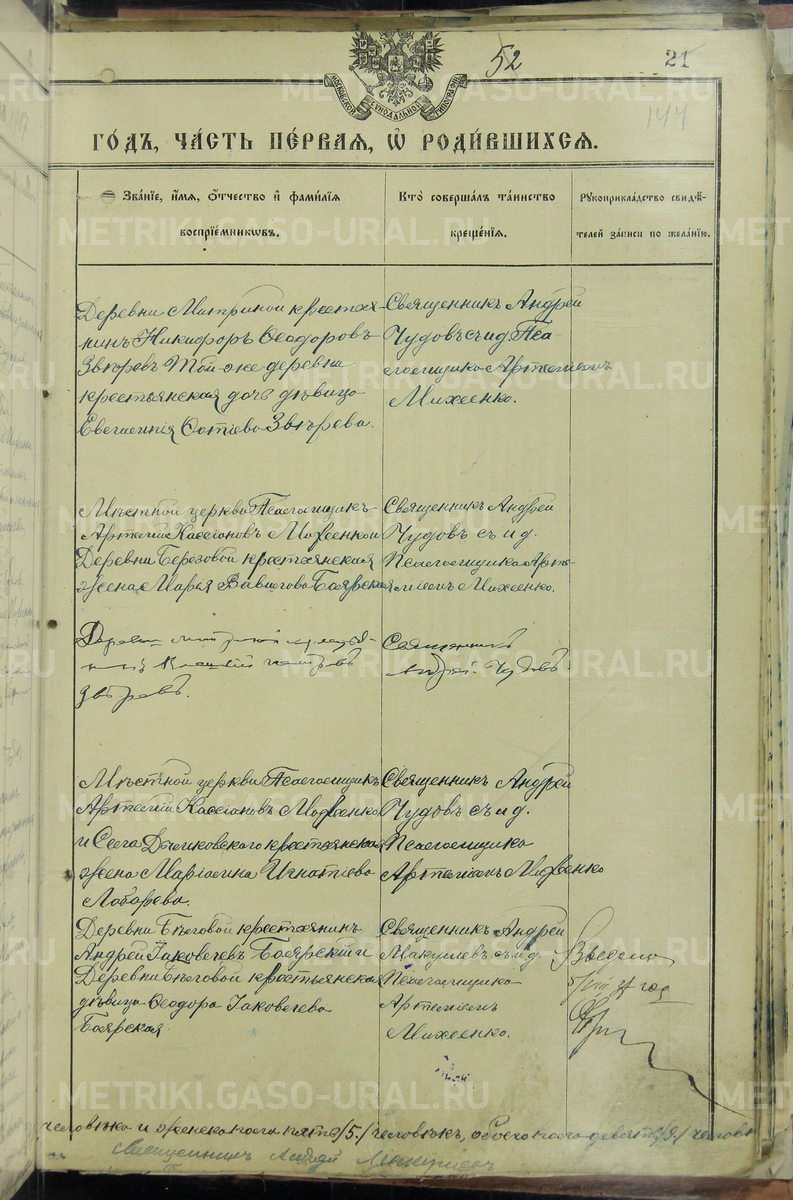 52
21
144
МОСКОВСКОЙ СѴНОДАЛЬНОЙ ТИПОГРАФІИ
ГО́ДЪ, ЧА́СТЬ ПЕ́РВАЯ, Ѡ҆ РОДИ́ВШИХСЯ.
Зва́нїе, и҆́мя, ѻ҆́тчество и҆ фами́лїя
воспрїе́мникѡвъ.
Кто̀ соверша́лъ та́инство
креще́нїя.
Рꙋкоприкла́дство свидѣ́-
телей за́писи по жела́нїю.
Деревни Митриной крестья-
нинъ Никифоръ Ѳеодоровъ
Звѣревъ Той-же деревни
крестьянская дочь дѣвица
Евгенія Фотіева Звѣрева.
Священникъ Андрей
Чудовъ съ и.д. Пса
ломщика Артеміемъ
Михеенко.
Мѣстной церкви Псаломщикъ
Артемій Кассіановъ Михеенко и
Деревни Березовой крестьянская
жена Марія Вавилова Боярская
Священникъ Андрей
Чудовъ съ и.д.
Псаломщика Арте-
міемъ Михеенко.
Деревни Митриной крестья-
нинъ Петровъ
Звѣревъ.
Священникъ
Андрей Чудовъ.
Мѣстной церкви Псаломщикъ
Артемій Кассіановъ Михеенко
и Села крестьянская
жена Маріамна Игнатіева
Лобарева.
Священникъ Андрей
Чудовъ съ и.д.
Псаломщика
Артеміемъ Михеенко
Деревни Бѣговой крестьянинъ
Андрей Іаковлевъ Боярскій и
Деревни Бѣговой крестьянская
дѣвица Ѳеодора Іаковлева
Боярская.
Священникъ Андрей
Макушевъ съ и.д.
Псаломщика
Артеміемъ
Михеенко.
год
человѣка и женскаго пять /5/ человѣкъ, обоего пола девять /9/ человѣкъ
Священникъ Андрей
METRIKI.GASO-URAL.RU